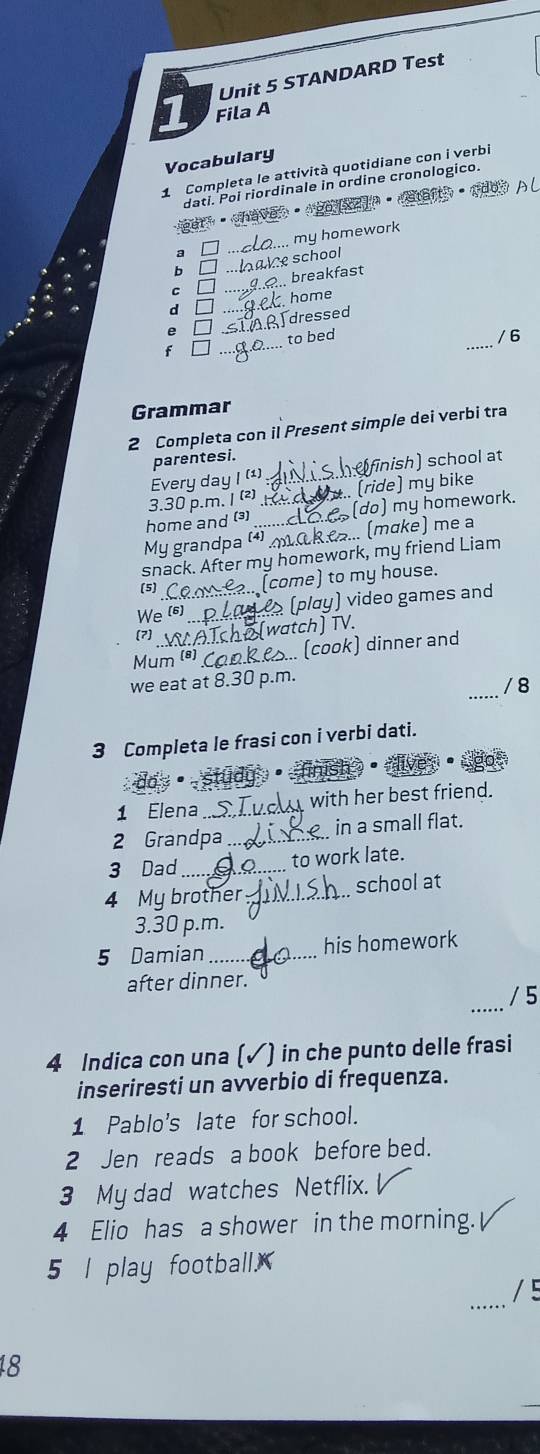 1
Unit 5 STANDARD Test
Fila A
Vocabulary
1 Completa le attività quotidiane con i verbi
dati. Poi riordinale in ordine cronologico.
get • have • go (x2) • start • do
a do my homework
b have school
c go breakfast
d get home
e START dressed
f go to bed
...... / 6
Grammar
2 Completa con il Present simple dei verbi tra
parentesi.
Every day I (1) finishe (finish) school at
3.30 p.m. I (2) (ride) my bike
home and (3) does (do) my homework.
My grandpa (4) makes (make) me a
snack. After my homework, my friend Liam
(5) Comes (come) to my house.
We (6) playes (play) video games and
(7) WATches (watch) TV.
Mum (8) cookes (cook) dinner and
we eat at 8.30 p.m.
...... / 8
3 Completa le frasi con i verbi dati.
do • study • finish • live • go
1 Elena STudy with her best friend.
2 Grandpa Live in a small flat.
3 Dad go to work late.
4 My brother finish school at
3.30 p.m.
5 Damian do his homework
after dinner.
...... / 5
4 Indica con una (✓) in che punto delle frasi
inseriresti un avverbio di frequenza.
1 Pablo's late for school.
2 Jen reads a book before bed.
3 My dad watches Netflix. ✓
4 Elio has a shower in the morning. ✓
5 I play football.
...... / 5
48